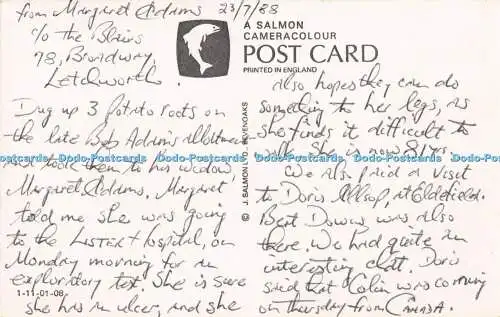 from Margaret Adams 23/7/88
c/o The Blairs
78, Broadway,
Letchworth.
A SALMON
CAMERACOLOUR
POST CARD
PRINTED IN ENGLAND
© J. SALMON LTD. SEVENOAKS
Dug up 3 potato roots on
the late Bob Adams allotment
and took them to his widow,
Margaret Adams. Margaret
told me she was going
to the LISTER Hospital, on
Monday morning for an
exploritory test. She is sure
1-11-01-08
she has an ulcer, and she
also hopes they can do
something to her legs, as
she finds it difficult to
walk. She is now 81 yrs.
We also paid a visit
to Doris Allsop, at Eldefield.
Bert Downs was also
there. We had quite an
interesting chat. Doris
said that Colin was coming
on Thursday from CANADA.
Dodo-Postcards Dodo-Postcards Dodo-Postcards Dodo-Postcards Dodo-Postcards Dodo-Postcards